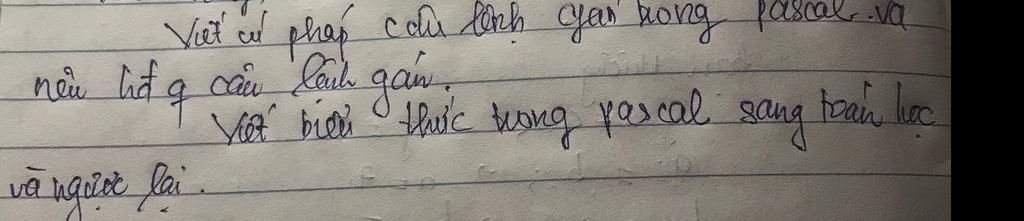 Viết cú pháp câu lệnh gán trong pascal và
nêu hđ q câu lệnh gán.
Viết biểu thức trong pascal sang toán học
và ngược lại.